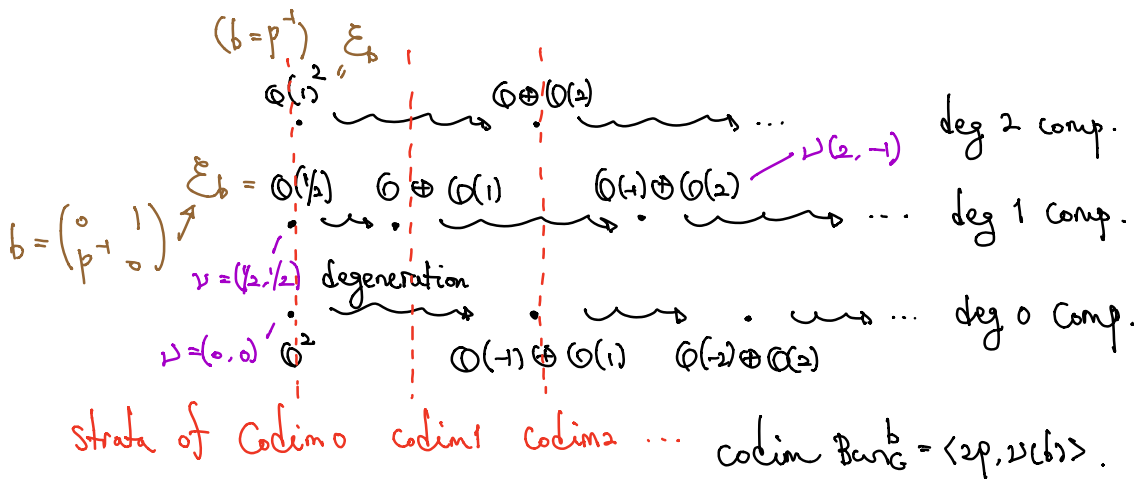 (b = p⁻¹) ℰ_b
𝒪(1)² 𝒪 ⊕ 𝒪(2)
... deg 2 comp.
ν(2, -1)
ℰ_b = 𝒪(1/2) 𝒪 ⊕ 𝒪(1) 𝒪(-1) ⊕ 𝒪(2)
b = (0 1 p⁻¹ 0) ... deg 1 comp.
ν = (1/2, 1/2) degeneration
... deg 0 comp.
ν = (0, 0) 𝒪² 𝒪(-1) ⊕ 𝒪(1) 𝒪(-2) ⊕ 𝒪(2)
strata of codim 0 codim 1 codim 2 ...
codim Bun_G^b = <2ρ, ν(b)>.